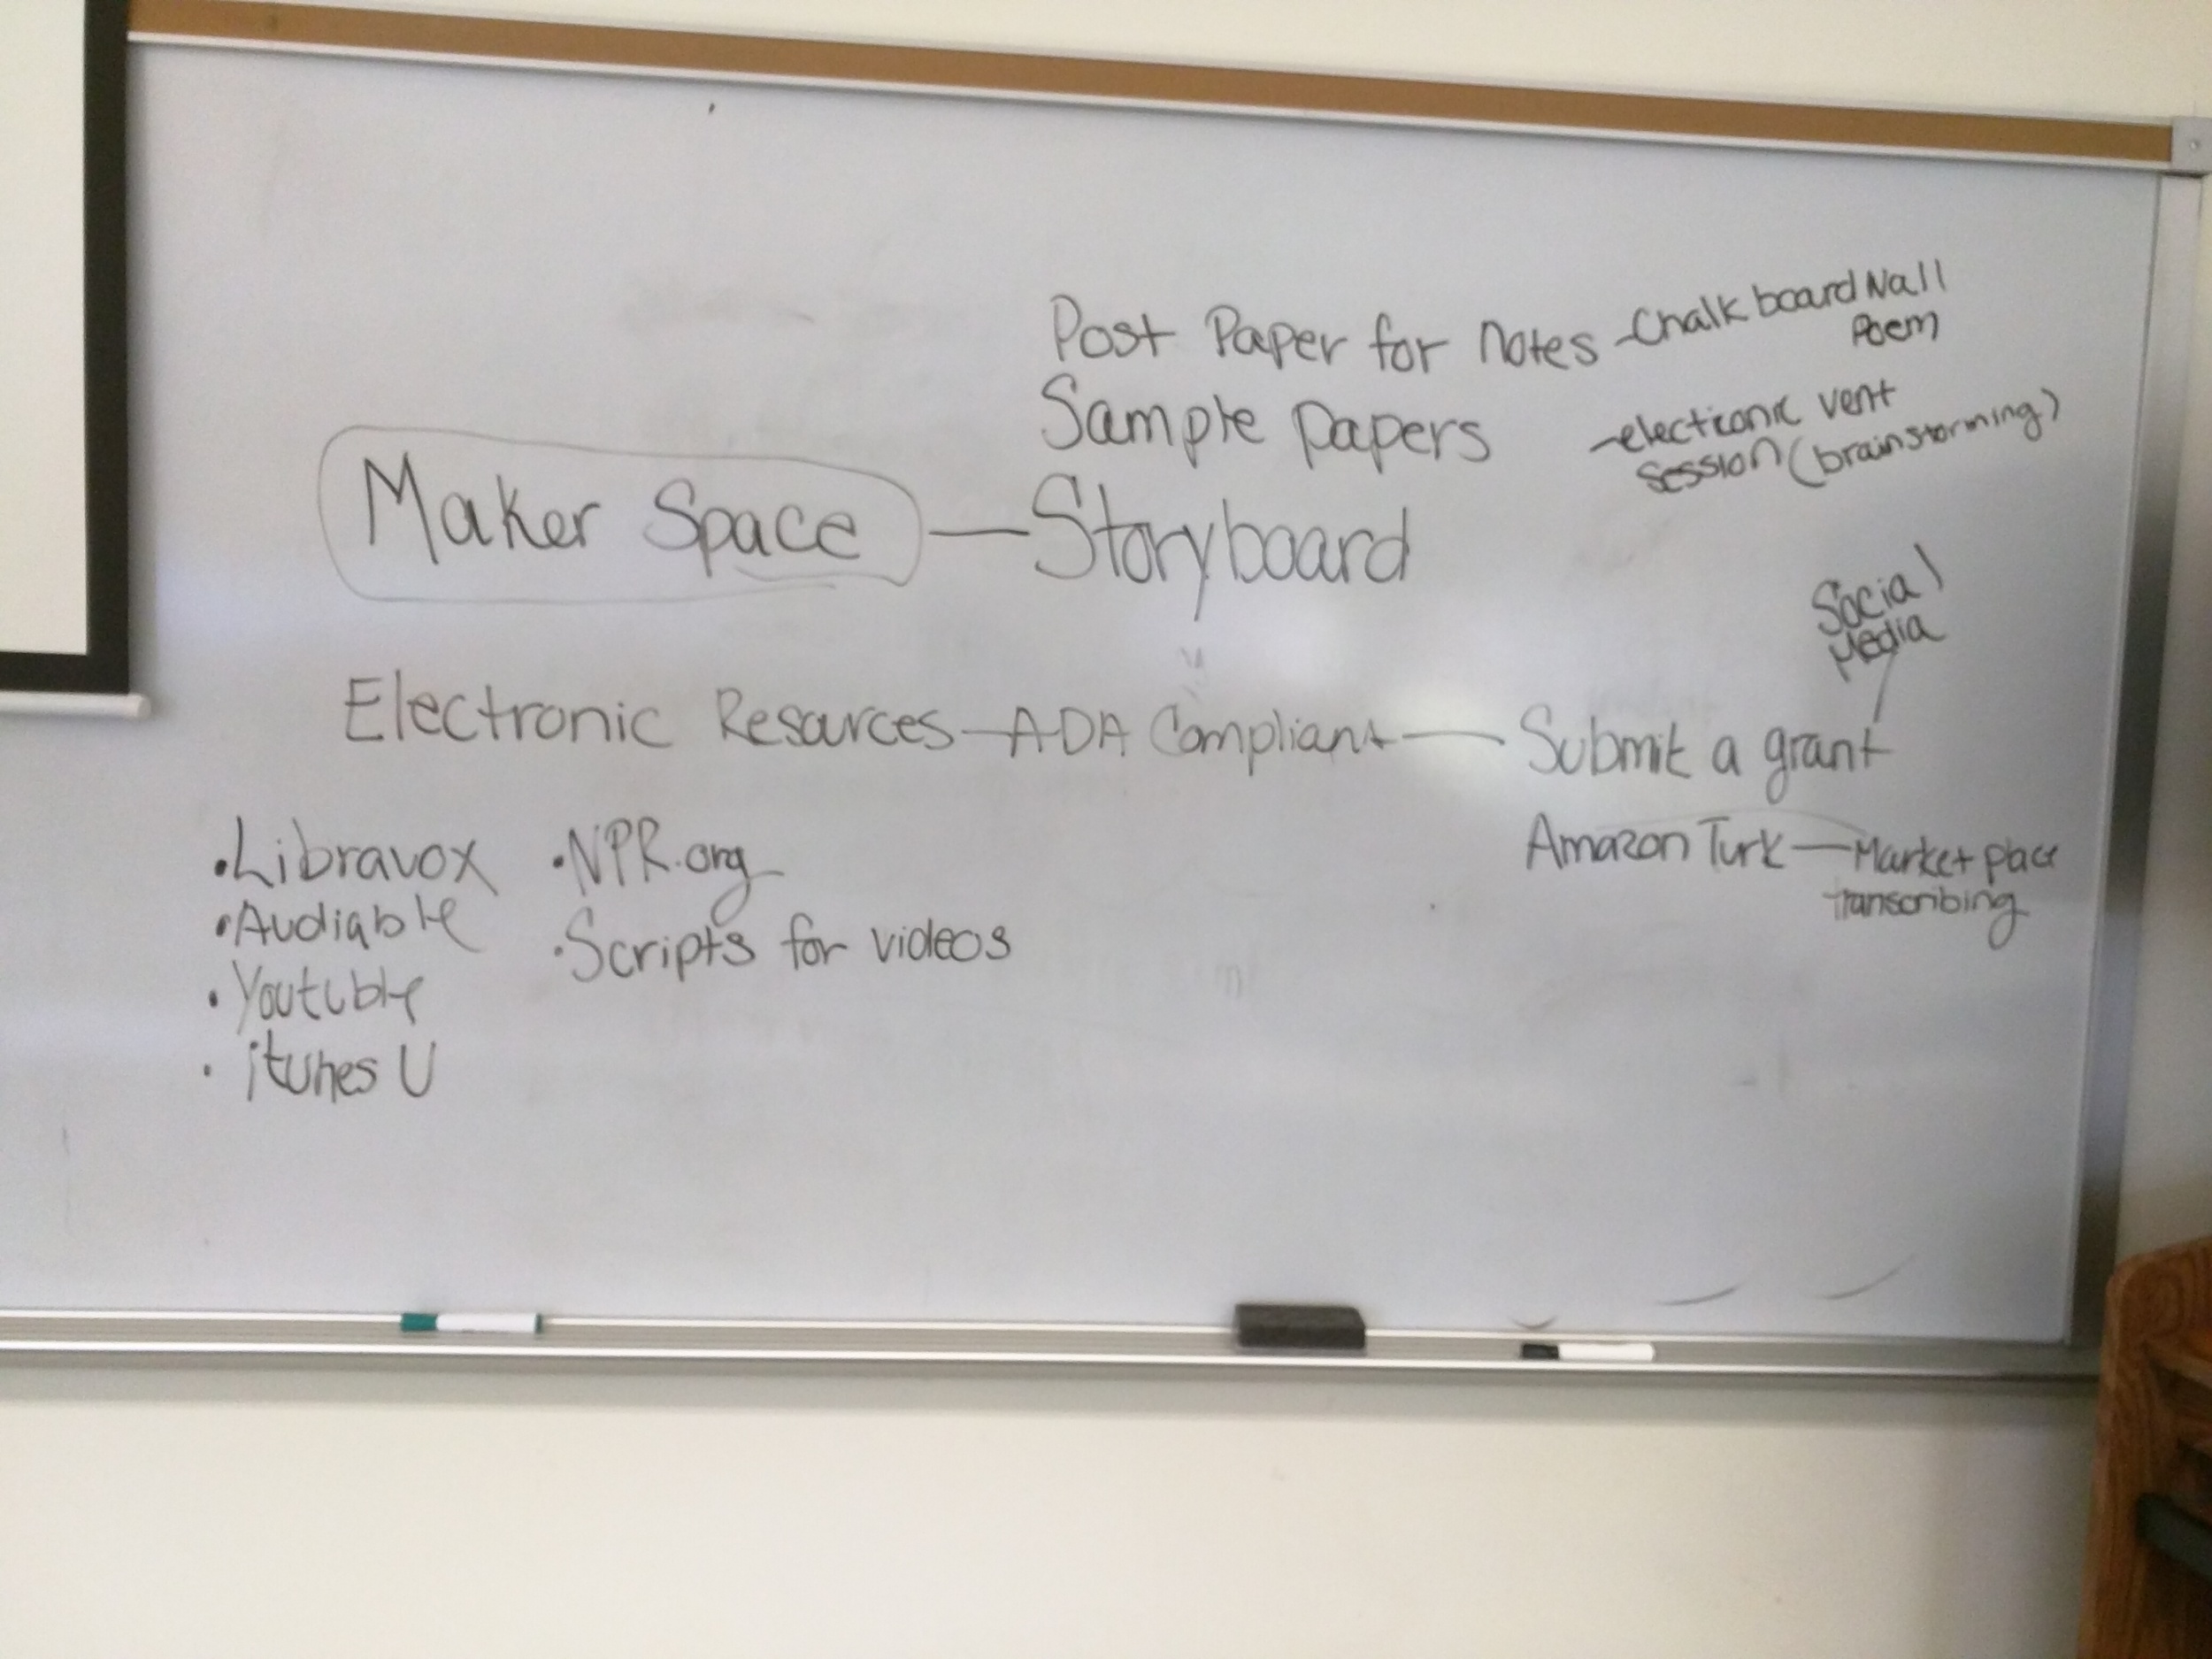 Post Paper for Notes - Chalkboard Wall
Poem
Sample papers
- electronic vent
session (brainstorming)
Maker Space — Storyboard
Social
Media
Electronic Resources — ADA Compliant — Submit a grant
• Libravox
• NPR.org
Amazon Turk — Market place
transcribing
• Audiable
• Scripts for videos
• Youtuble
• itunes U